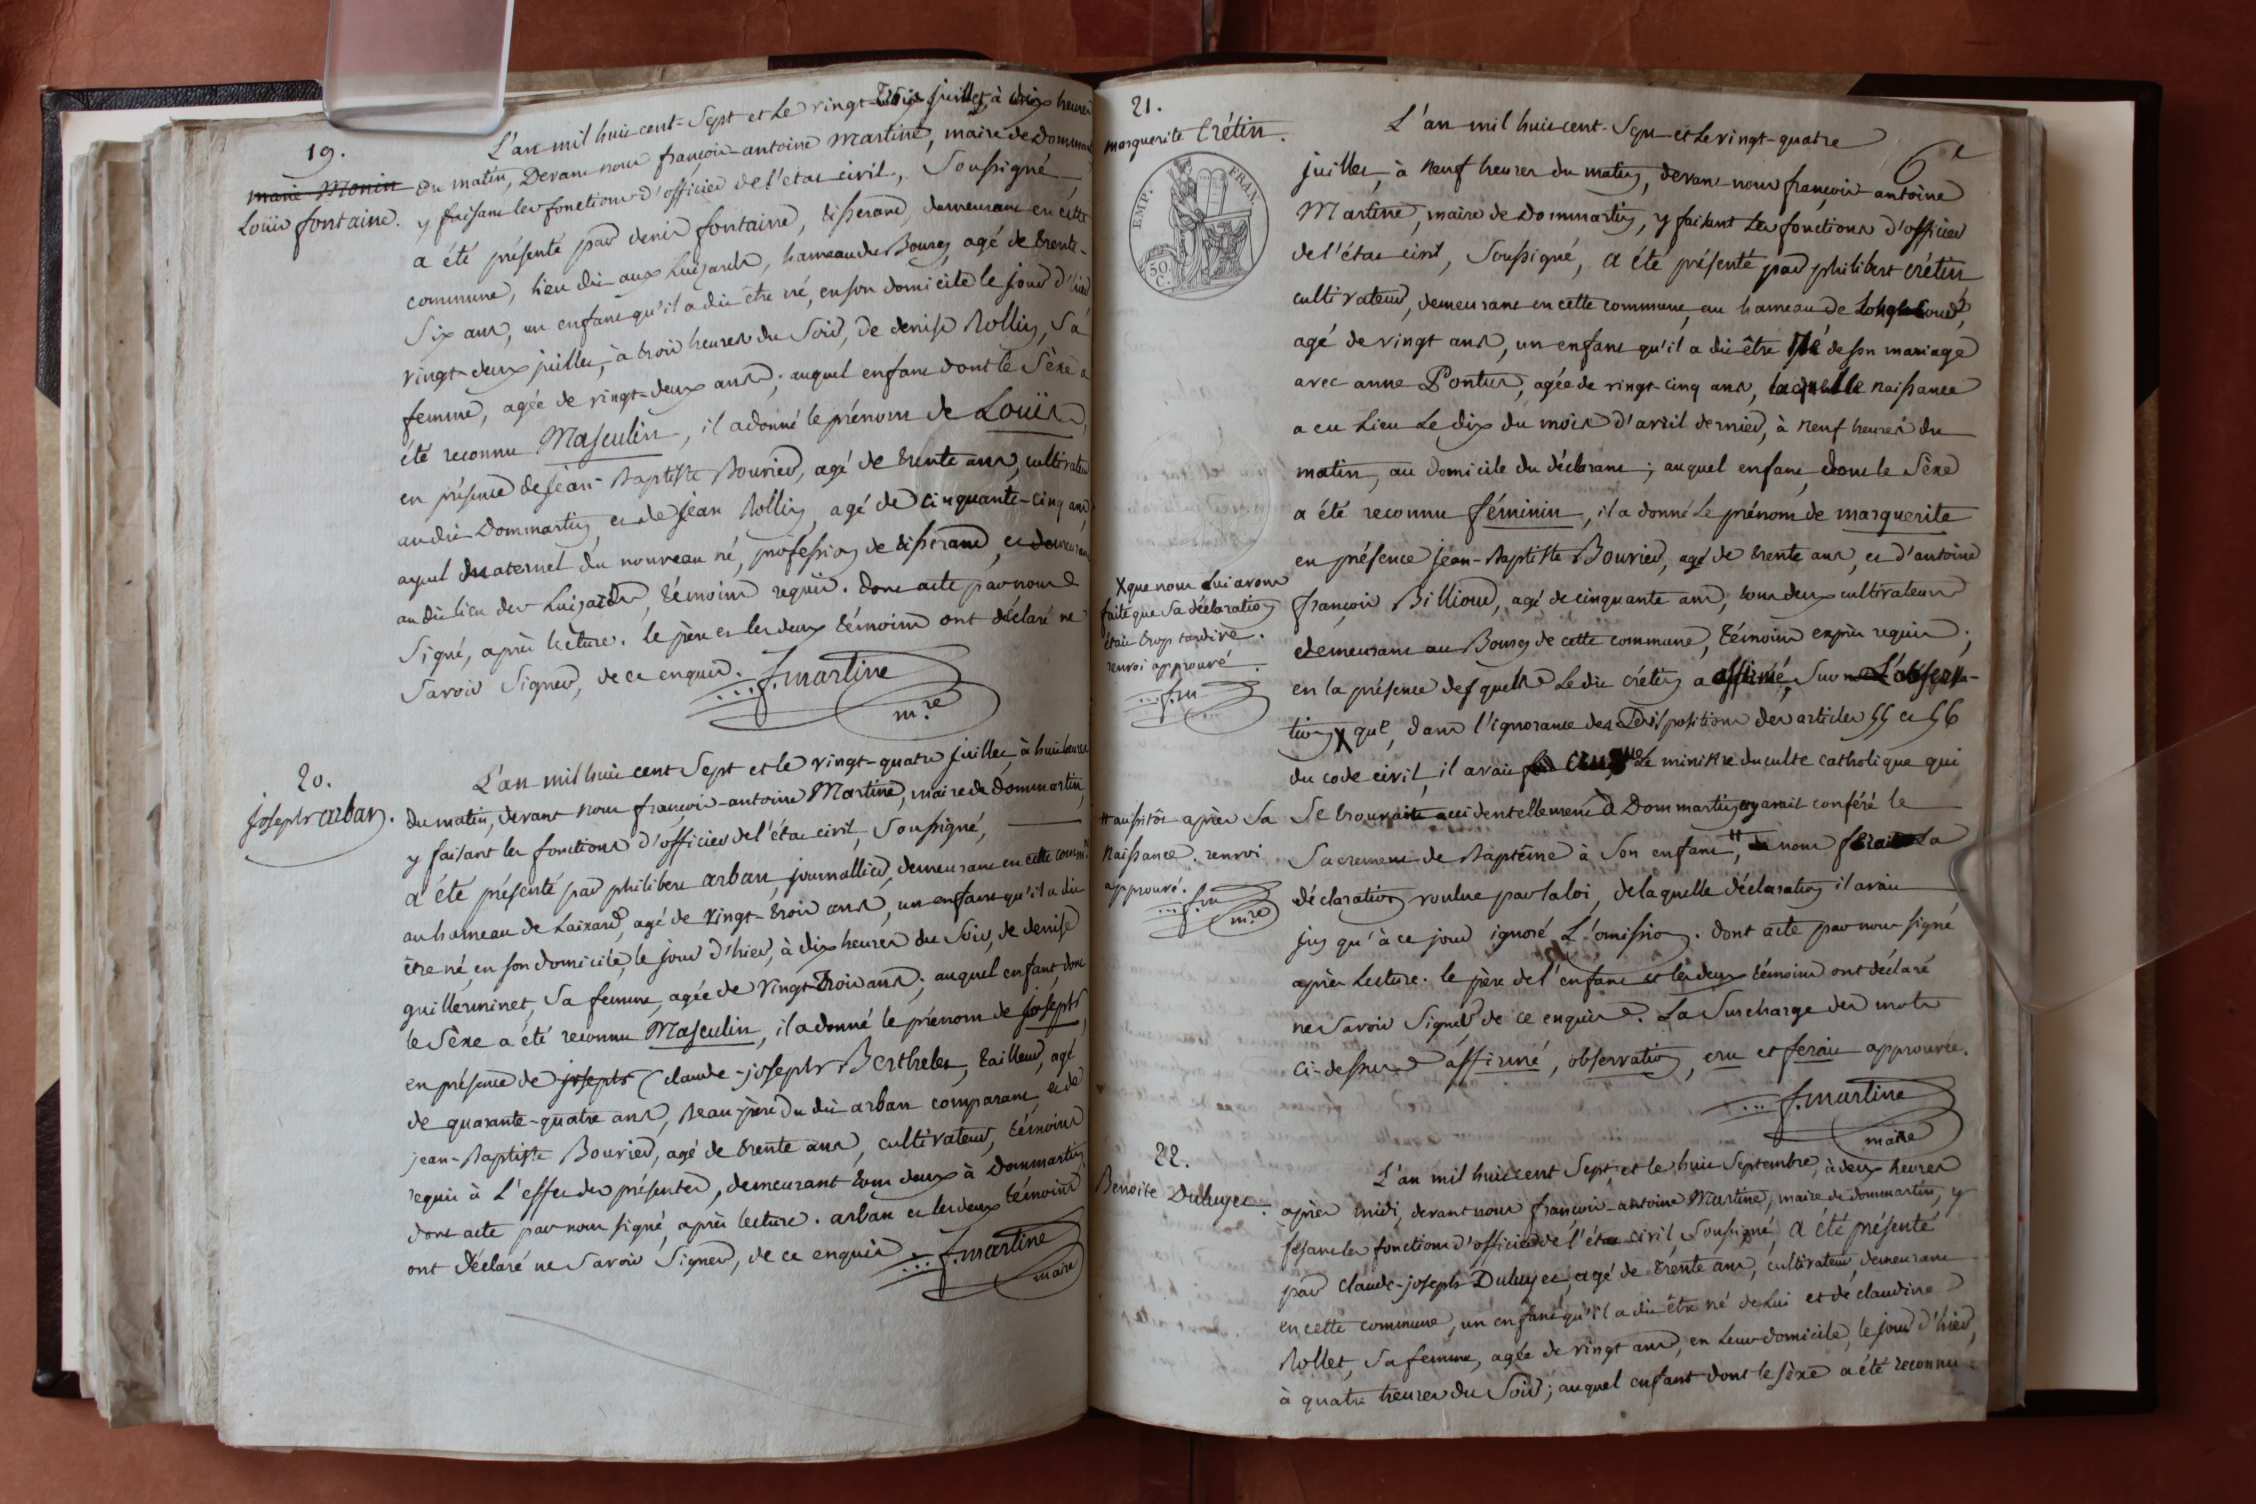 19.
marie Monin
Louis fontaine.
L'an mil huit cent-Sept et le vingt-trois juillet, à dix heures
du matin, Devant nous françois-antoine Martine, maire de Dommartin
y faisant les fonctions d'officier de l'état civil, Soussigné,
a été présenté par denis fontaine, tisserand, demeurant en cette
commune, lieu dit aux Luisards, hameau du Bourg, agé de trente-
Six ans, un enfant qu'il a dit être né, en son domicile le jour d'hier
vingt-deux juillet, à trois heures du Soir, de denise Rollin, Sa
femme, agée de vingt-deux ans; auquel enfant dont le Sèxe a
été reconnu Masculin, il a donné le prénom de Louis,
en présence de Jean-Baptiste Bouvier, agé de trente ans, cultivateur
audit Dommartin, et de jean Rollin, agé de cinquante-cinq ans,
ayeul maternel du nouveau né, profession de tisserand, et demeurant
audit lieu des Luisards, témoins requis. dont acte par nous
Signé, après lecture. le père et les deux témoins ont déclaré ne
Savoir Signer, de ce enquis. f. martine
m.re
20.
joseph arban.
L'an mil huit cent Sept et le vingt-quatre juillet, à huit heures
du matin, devant nous françois-antoine Martine, maire de dommartin,
y faisant les fonctions d'officier de l'état civil, Soussigné,
a été présenté par philibert arban, journallier, demeurant en cette comm.e
au hameau de Laizard, agé de vingt-trois ans, un enfant qu'il a dit
être né, en son domicile, le jour d'hier, à dix heures du Soir, de denise
guillerminet, Sa femme, agée de vingt-trois ans; auquel enfant, dont
le Sèxe a été reconnu Masculin, il a donné le prénom de joseph,
en présence de joseph claude-joseph Berthelet, tailleur, agé
de quarante-quatre ans, Beau père du dit arban comparant, et de
jean-Baptiste Bouvier, agé de trente ans, cultivateur, témoins
requis à L'effet des présentes, demeurant tous deux à Dommartin
dont acte par nous signé, après lecture. arban et les deux témoins
ont déclaré ne Savoir Signer, de ce enquis. f. martine
maire
21.
marguerite Crétin.
EMP. FRAN.
50 C.
L'an mil huit cent-Sept et le vingt-quatre
6e
juillet, à neuf heures du matin, devant nous françois-antoine
Martine, maire de Dommartin, y faisant les fonctions d'officier
de l'état civil, Soussigné, a été présenté par philibert crétin
cultivateur, demeurant en cette commune, au hameau de
agé de vingt ans, un enfant qu'il a dit être né de son mariage
avec anne Pontus, agée de vingt-cinq ans, laquelle naissance
a eu Lieu Le dix du mois d'avril dernier, à neuf heures du
matin, au domicile du déclarant; auquel enfant, dont le Sèxe
a été reconnu féminin, il a donné Le prénom de marguerite
en présence jean-Baptiste Bouvier, agé de trente ans, et d'antoine
françois Billioud, agé de cinquante ans, tous deux cultivateurs
demeurant au Bourg de cette commune, témoins exprès requis;
en la présence desquels Le dit crétin a affirmé, Sur L'observa-
tion X que, dans l'ignorance des Dispositions des articles 55 et 56
du code civil, il avait cru que Le ministre du culte catholique qui
Se trouvait accidentellement à Dommartin, ayant conféré le
Sacrement de Baptême à Son enfant #, nous ferait La
déclaration voulue par la loi, de laquelle déclaration il avait
jusqu'à ce jour ignoré L'omission. dont acte par nous signé
après Lecture. le père de l'enfant et les deux témoins ont déclaré
ne Savoir Signer de ce enquis. La Surcharge des mots
ci-dessus affirmé, observation, cru et ferait approuvée.
f. martine
maire
X que nous Lui avons
faite que Sa déclaration
était trop tardive.
renvoi approuvé.
f. m
# aussitôt après Sa
Naissance. renvoi
approuvé. f. m
m.re
22.
Benoite Duluyer.
L'an mil huit cent Sept, et le huit Septembre, à deux heures
après midi, devant nous françois-antoine Martine, maire de dommartin, y
fesant les fonctions d'officier de l'état civil, Soussigné, a été présenté
par claude-joseph Duluyer, agé de trente ans, cultivateur, demeurant
en cette commune, un enfant qu'il a dit être né de Lui et de claudine
Rollet, Sa femme, agée de vingt ans, en Leur domicile, le jour d'hier,
à quatre heures du Soir; auquel enfant dont le sèxe a été reconnu